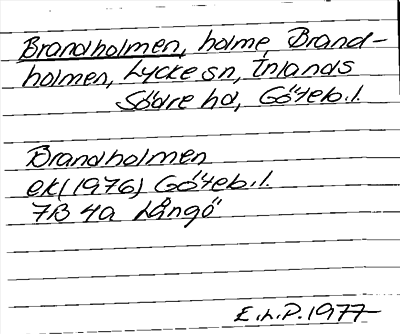 Brandholmen, holme, Brand-
holmen, Lycke sn, Inlands
Södre hd, Göteb. l.
Brandholmen
ek (1976) Göteb. l.
7B 4a Långö
E.L.P. 1977